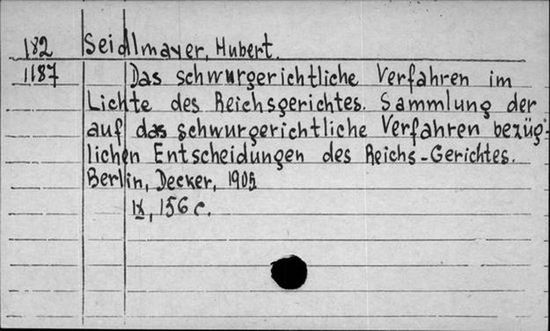 182 Seidlmayer, Hubert.
1187 Das schwurgerichtliche Verfahren im
Lichte des Reichsgerichtes. Sammlung der
auf das schwurgerichtliche Verfahren bezüg-
lichen Entscheidungen des Reichs-Gerichtes.
Berlin, Decker, 1905
IX, 156 c.